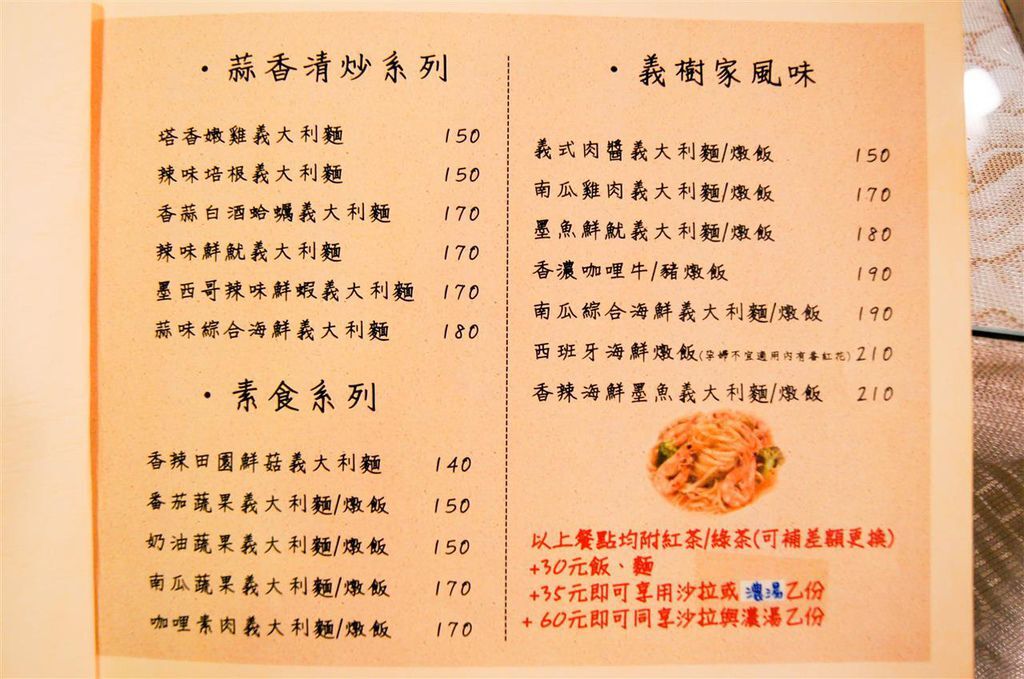 ・蒜香清炒系列
塔香嫩雞義大利麵 150
辣味培根義大利麵 150
香蒜白酒蛤蠣義大利麵 170
辣味鮮魷義大利麵 170
墨西哥辣味鮮蝦義大利麵 170
蒜味綜合海鮮義大利麵 180
・素食系列
香辣田園鮮菇義大利麵 140
番茄蔬果義大利麵/燉飯 150
奶油蔬果義大利麵/燉飯 150
南瓜蔬果義大利麵/燉飯 170
咖哩素肉義大利麵/燉飯 170
・義樹家風味
義式肉醬義大利麵/燉飯 150
南瓜雞肉義大利麵/燉飯 170
墨魚鮮魷義大利麵/燉飯 180
香濃咖哩牛/豬燉飯 190
南瓜綜合海鮮義大利麵/燉飯 190
西班牙海鮮燉飯(孕婦不宜適用內有番紅花) 210
香辣海鮮墨魚義大利麵/燉飯 210
以上餐點均附紅茶/綠茶(可補差額更換)
+30元飯、麵
+35元即可享用沙拉或濃湯乙份
+60元即可同享沙拉與濃湯乙份